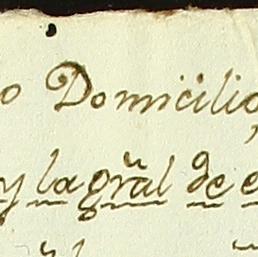 o Domicilio,
y la gral de e